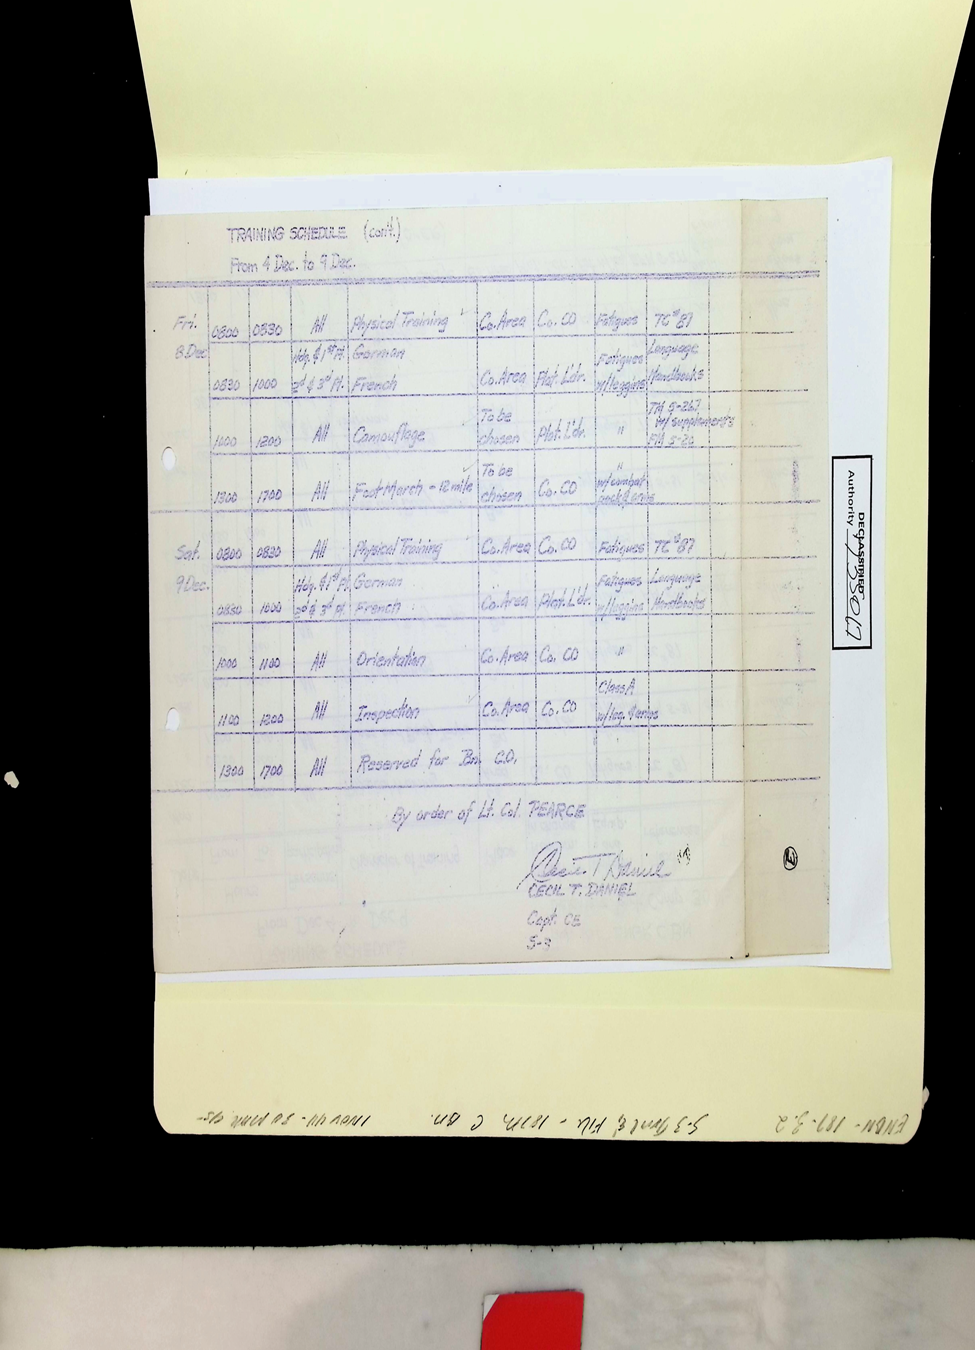 TRAINING SCHEDULE (cont.)
From 4 Dec. to 9 Dec.
Fri. 8 Dec. 0800 0830 All Physical Training Co. Area Co. CO Fatigues TC #87
0830 1000 Hdq. & 1st Pl. German
2d & 3d Pl. French Co. Area Plat. L'dr. Fatigues w/leggins Language Handbooks
1000 1200 All Camouflage To be chosen Plat. L'dr. " TM 5-267 w/supplements FM 5-20
1300 1700 All Foot March - 12 mile To be chosen Co. CO " w/combat pack & arms
Sat. 9 Dec. 0800 0830 All Physical Training Co. Area Co. CO Fatigues TC #87
0830 1000 Hdq. & 1st Pl. German
2d & 3d Pl. French Co. Area Plat. L'dr. Fatigues w/leggins Language Handbooks
1000 1100 All Orientation Co. Area Co. CO "
1100 1200 All Inspection Co. Area Co. CO Class A w/leg. & arms
1300 1700 All Reserved for Bn. C.O.
By order of Lt. Col. PEARCE
Cecil T Daniel
CECIL T. DANIEL
Capt. CE
S-3
DECLASSIFIED
Authority 735017
ENBN - 187 - 3.2